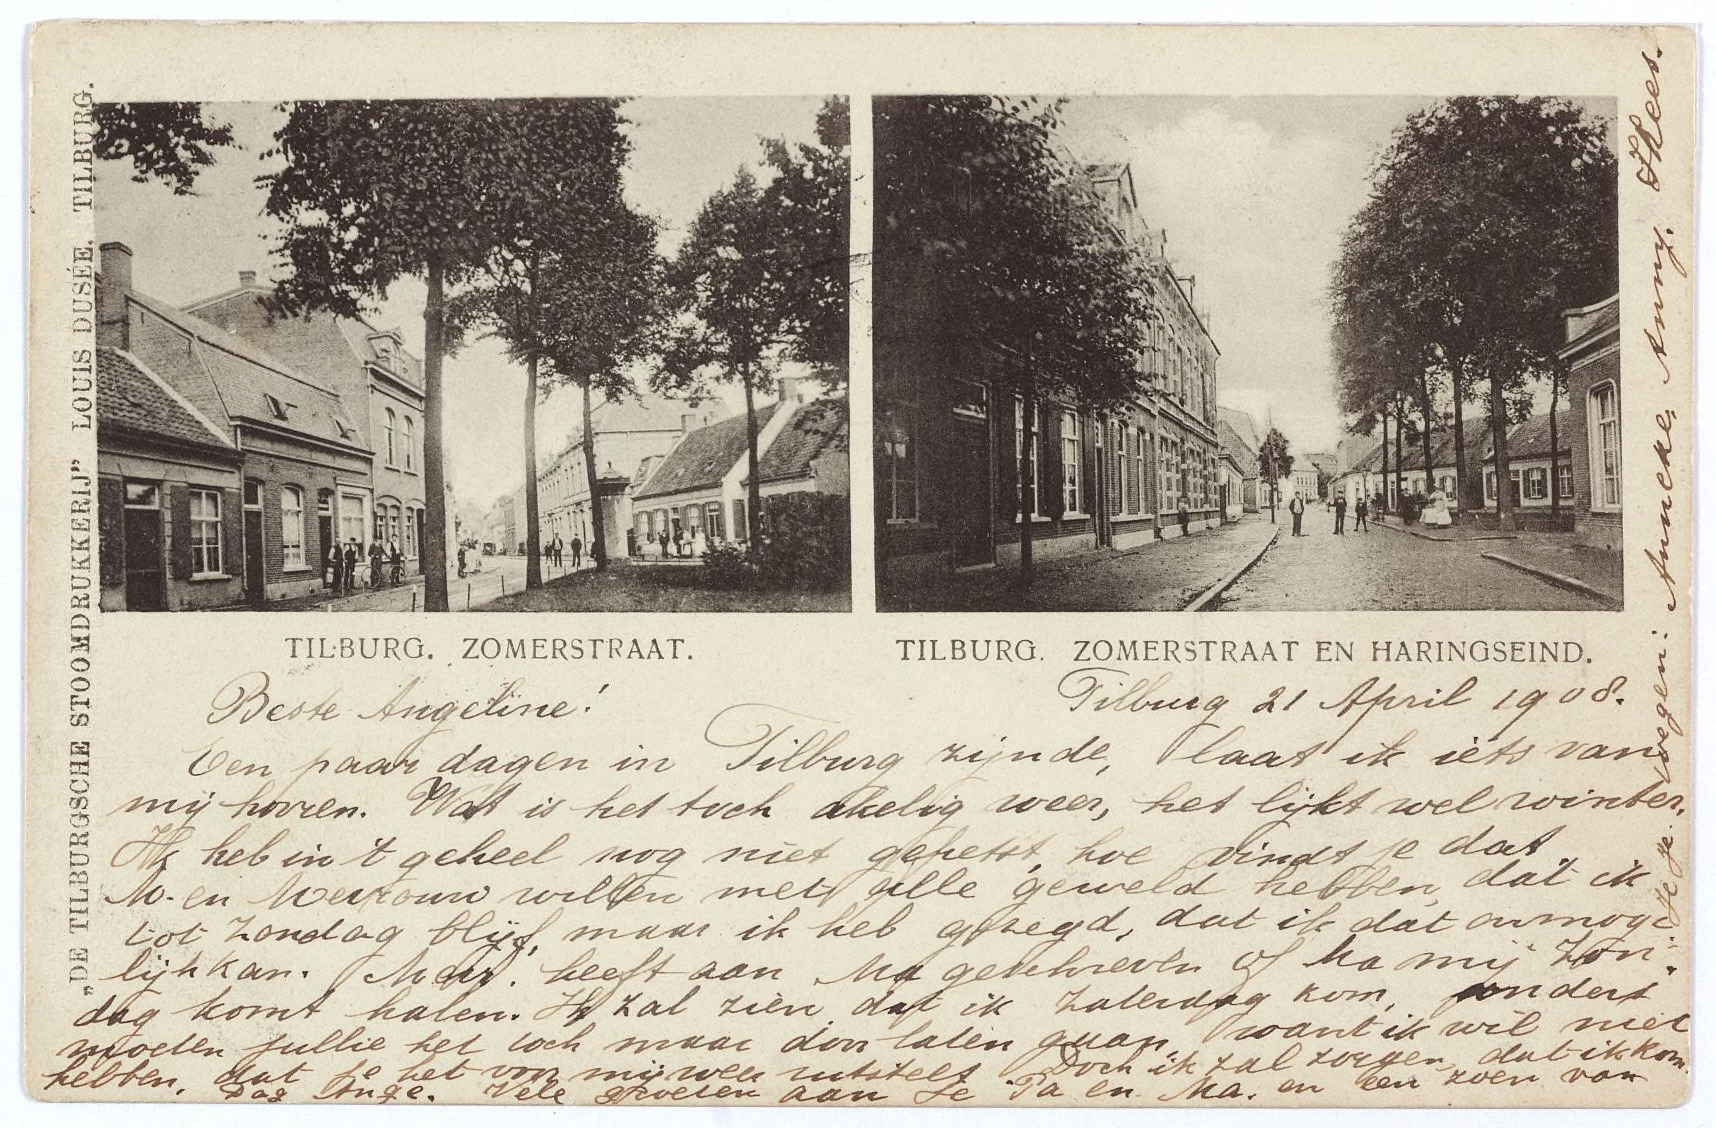 „DE TILBURGSCHE STOOMDRUKKERIJ” LOUIS DUSÉE. TILBURG.
TILBURG. ZOMERSTRAAT.
TILBURG. ZOMERSTRAAT EN HARINGSEIND.
Beste Angeline!
Tilburg 21 April 1908.
Een paar dagen in Tilburg zijnde, laat ik iets van
mij hooren. Wat is het toch akelig weer, het lijkt wel winter.
Ik heb in 't geheel nog niet gefietst, hoe vindt je dat
M. en Mevrouw willen met alle geweld hebben, dat ik
tot Zondag blijf, maar ik heb gezegd, dat ik dat onmoge-
lijk kan. Mevr. heeft aan Ma geschreven of Ma mij Zon-
dag komt halen. Ik zal zien dat ik Zaterdag kom, anders
moeten jullie het toch maar door laten gaan, want ik wil niet
hebben, dat je het voor mij weer uitstelt. Doch ik zal zorgen, dat ik kom.
Dag Ange. Vele groeten aan Je Pa en Ma. en een zoen van
Je Je
Anneke, Anny,